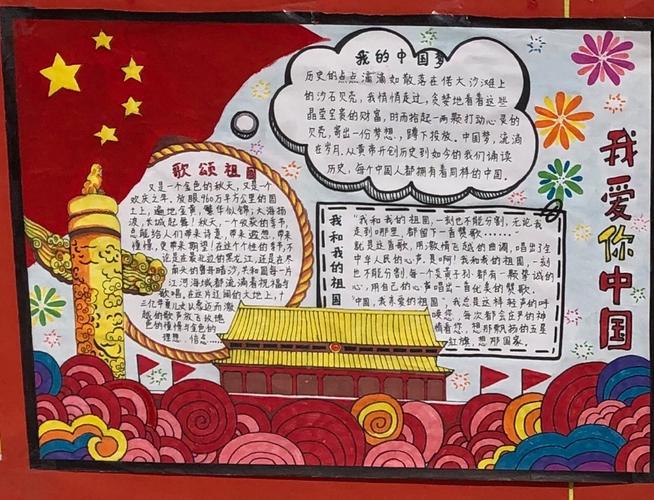 我的中国梦
历史的点点滴滴如散落在偌大沙滩上
的沙石贝壳，我悄悄走过，贪婪地看着这些
晶莹呈亮的财富，时而拾起一两颗打动心灵的
贝壳，寄出一份梦想，蹲下投放。中国梦，流淌
在岁月，从黄帝开创历史到如今的我们诵读
历史，每个中国人都拥有着同样的中国。
我爱你中国
歌颂祖国
又是一个金色的秋天，又是一个
欢庆之年，放眼960万平方公里的国
土上，遍地金黄，繁华似锦，大海扬
波，长城起舞！秋天，一个收获的季节，
总能给人们带来诗意，带来遐想，带来
憧憬，更带来期望！在这个个性的季节，不
论是在最北边的黑龙江，还是在
南头的曾母暗沙，共和国每一片
江河海域都流淌着祝福与
歌唱，在这片辽阔的大地上，十
三亿华夏儿女从悠远而激
越的歌声放飞玫瑰
色的憧憬与金色的
理想，信念……
我和我的祖国
“我和我的祖国，一刻也不能分割，无论我
走到哪里，都留下一首赞歌……”
就是这首歌，用激情飞越的曲调，唱出了全
中华人民的心声。是啊！我和我的祖国，一刻
也不能分割，每一个炎黄子孙都有一颗挚诚的
心，用自己的心声唱出一首优美的赞歌。
“中国，我亲爱的祖国”，我总是这样轻声的呼
唤您，每次都会庄严的神
情看您，想那飘扬的五星
红旗，想那国家。